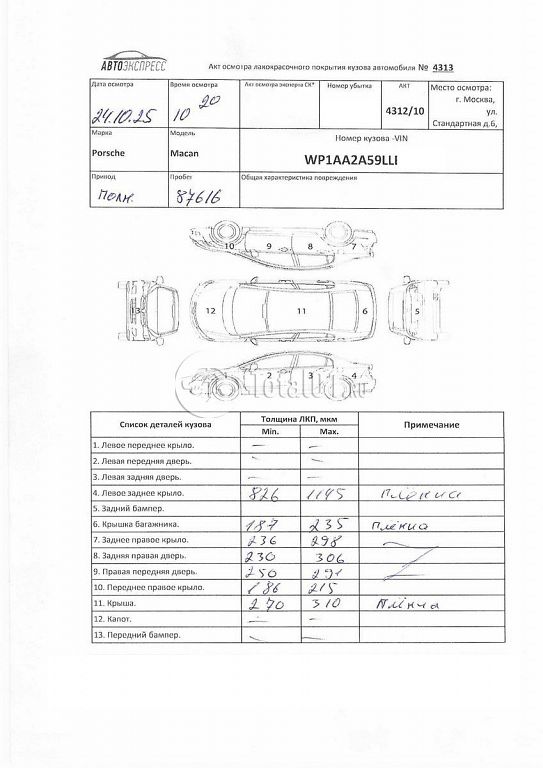 АВТОЭКСПРЕСС
Акт осмотра лакокрасочного покрытия кузова автомобиля № 4313
Дата осмотра Время осмотра Акт осмотра эксперта СК* Номер убытка АКТ Место осмотра:
24.10.25 10 20 4312/10 г. Москва,
ул.
Стандартная д.6,
Марка Модель Номер кузова -VIN
Porsche Macan WP1AA2A59LLI
Привод Пробег Общая характеристика повреждений
Полн. 87616
10 9 8 7
13 12 11 6 5
1 2 3 4
Total01.ru
Список деталей кузова Толщина ЛКП, мкм Примечание
Min. Max.
1. Левое переднее крыло. — —
2. Левая передняя дверь. - -
3. Левая задняя дверь. — —
4. Левое заднее крыло. 826 1145 Плёнка
5. Задний бампер.
6. Крышка багажника. 187 235 Плёнка
7. Заднее правое крыло. 236 298
8. Задняя правая дверь. 230 306
9. Правая передняя дверь. 250 291
10. Переднее правое крыло. 186 215
11. Крыша. 270 310 Плёнка
12. Капот. — —
13. Передний бампер. - -